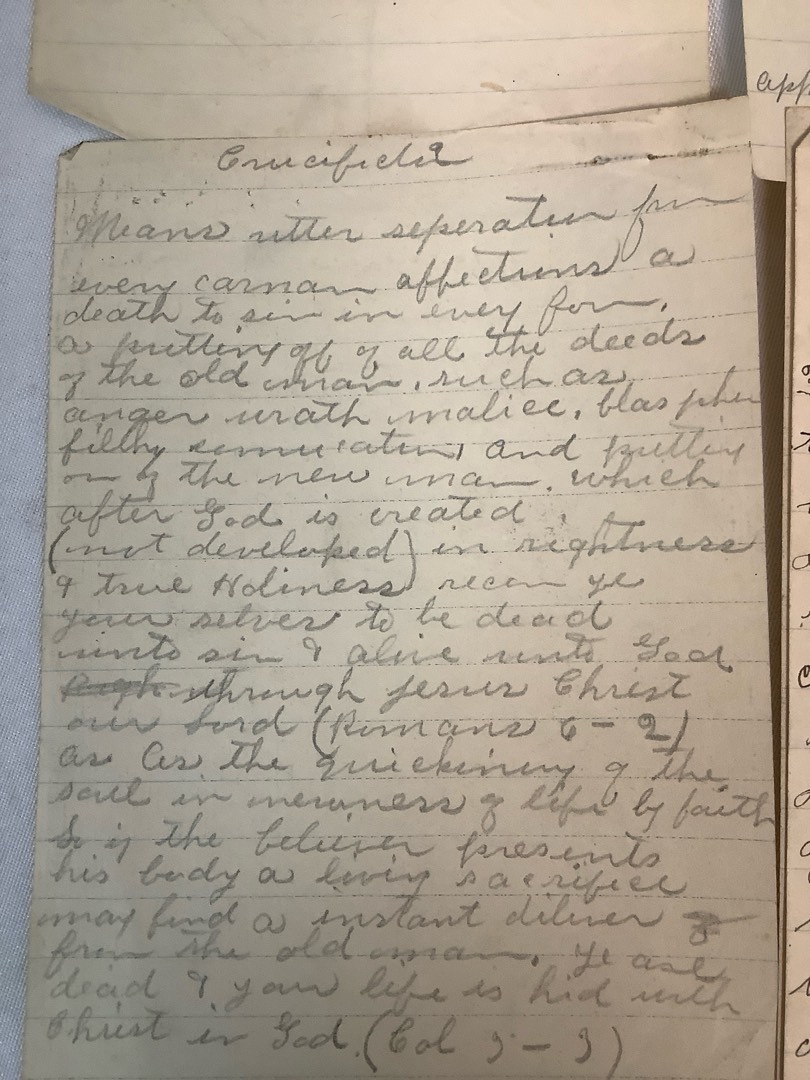 Crucified
Means utter seperation from
every carnan affections a
death to sin in every form,
a putting off of all the deeds
of the old man, such as,
anger wrath malice, blasphe
filthy comucation, and putting
on of the new man, which
after God is created,
(not developed) in rightness
& true Holiness recon ye
your selves to be dead
unto sin & alive unto God
through Jesus Christ
our Lord (Romans 6-2)
as as the quickining of the
soul in newness of life by faith
So if the believer presents
his body a living sacrifice
may find a instant diliver
from the old man, ye are
dead & your life is hid with
Christ in God. (Col 3-3)
app